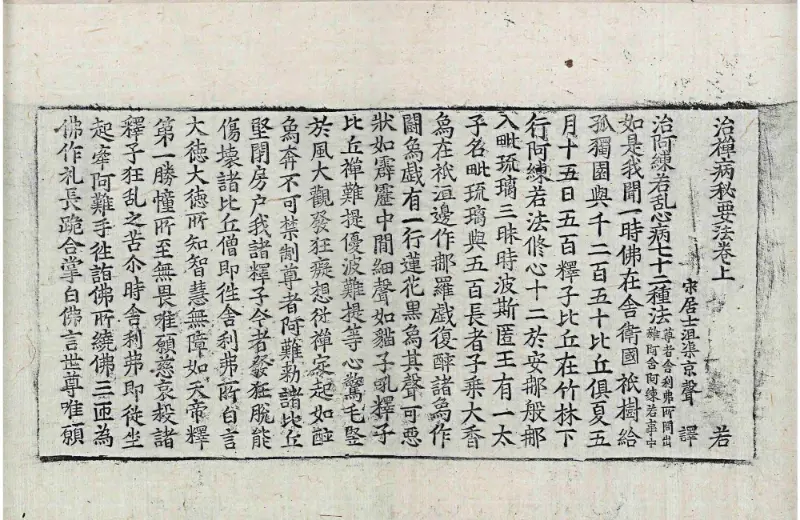 治禪病秘要法卷上
若
宋居士沮渠京聲 譯
治阿練若乱心病七十二種法 尊者舍利弗所問出雜阿含阿練若事中
如是我聞一時佛在舍衛國祇樹給
孤獨園與千二百五十比丘俱夏五
月十五日五百釋子比丘在竹林下
行阿練若法修心十二於安那般那
入毗琉璃三昧時波斯匿王有一太
子名毗琉璃與五百長者子乘大香
象在祇洹邊作那羅戲復醉諸象作
鬪象戲有一行蓮花黑象其聲可惡
狀如霹靂中間細聲如貓子吼釋子
比丘禪難提優波難提等心驚毛竪
於風大觀發狂癡想從禪定起如醉
象奔不可禁制尊者阿難勑諸比丘
堅閉房户我諸釋子今者發狂脫能
傷壞諸比丘僧即徃舍利弗所白言
大德大德所知智慧無障如天帝釋
第一勝幢所至無畏唯願慈哀救諸
釋子狂乱之苦尒時舍利弗即從坐
起牽阿難手徃詣佛所繞佛三匝為
佛作礼長跪合掌白佛言世尊唯願